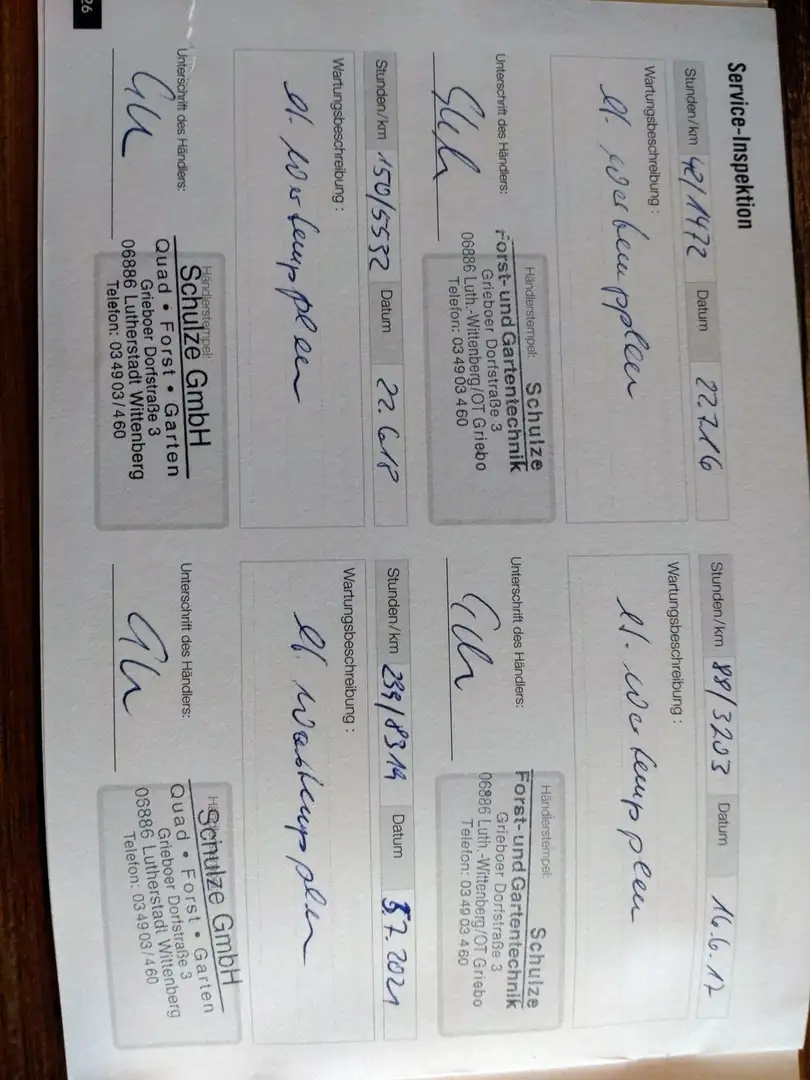 Service-Inspektion
Stunden/km 42/1472 Datum 22.7.16
Wartungsbeschreibung :
lt. Wartungsplan
Unterschrift des Händlers:
Händlerstempel:
Schulze
Forst- und Gartentechnik
Grieboer Dorfstraße 3
06886 Luth.-Wittenberg/OT Griebo
Telefon: 03 49 03 4 60
Stunden/km 88/3203 Datum 16.6.17
Wartungsbeschreibung :
lt. Wartungsplan
Unterschrift des Händlers:
Händlerstempel:
Schulze
Forst- und Gartentechnik
Grieboer Dorfstraße 3
06886 Luth.-Wittenberg/OT Griebo
Telefon: 03 49 03 4 60
Stunden/km 150/5532 Datum 22.6.18
Wartungsbeschreibung :
lt. Wartungsplan
Unterschrift des Händlers:
Händlerstempel:
Schulze GmbH
Quad • Forst • Garten
Grieboer Dorfstraße 3
06886 Lutherstadt Wittenberg
Telefon: 03 49 03 / 4 60
Stunden/km 239/8314 Datum 5.7.2021
Wartungsbeschreibung :
lt. Wartungsplan
Unterschrift des Händlers:
Schulze GmbH
Quad • Forst • Garten
Grieboer Dorfstraße 3
06886 Lutherstadt Wittenberg
Telefon: 03 49 03 / 4 60
26